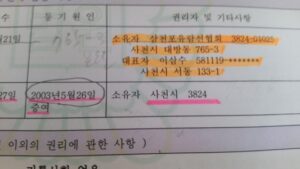 등 기 원 인
권리자 및 기타사항
21일
소유자 삼천포유람선협회 3824-01025
사천시 대방동 765-3
대표자 이삼수 581119-*******
사천시 서동 133-1
27일
2003년5월26일
증여
소유자 사천시 3824
이외의 권리에 관한 사항 )